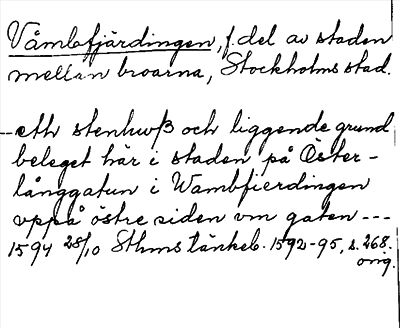 Våmbfjärdingen, f. del av staden
mellan broarna, Stockholms stad.
--eth stenhwß och liggende grund
beleget här i staden på Öster-
långgatun i Wambfierdingen
vppå östre siden vm gaten ---
1594 28/10 Sthms tänkeb. 1592-95, s. 268.
orig.